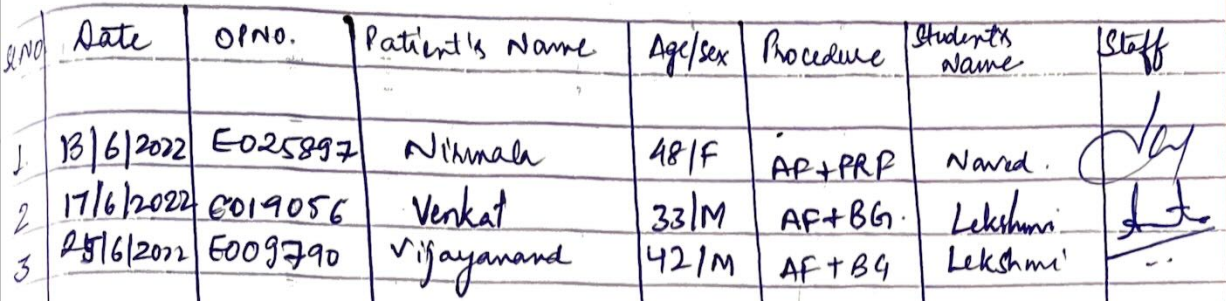 Sl.NO Date OPNO. Patient's Name Age/Sex Procedure Student's Name Staff
1. 13/6/2022 E025897 Nirmala 48/F AP+PRP Naved.
2 17/6/2022 E019056 Venkat 33/M AF+BG. Lekshmi
3 25/6/2022 E009790 Vijayanand 42/M AF+BG Lekshmi